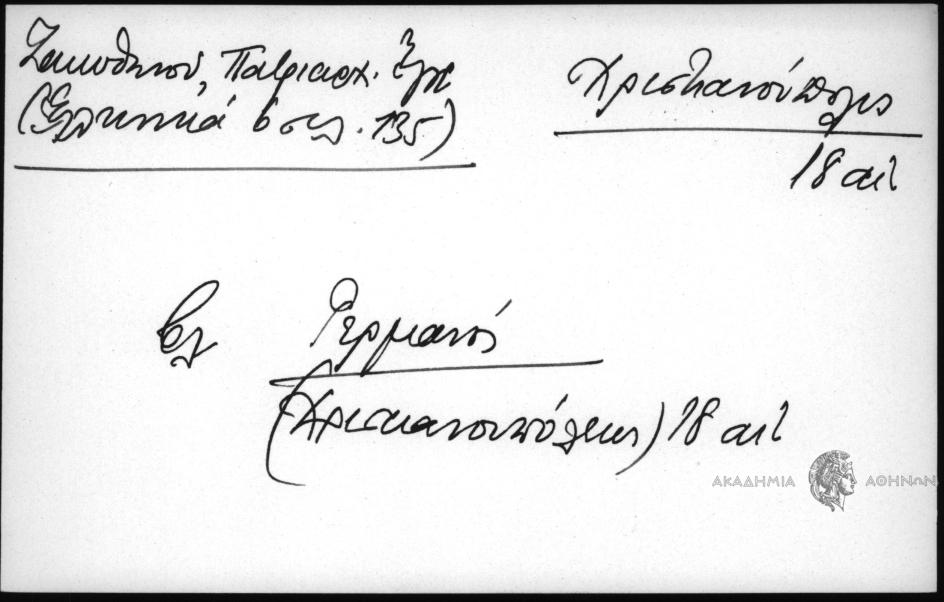 Ζακυθηνού, Πατριαρχ. Έγγρ
(Ελληνικά 6 σελ. 135)
Χριστιανούπολις
18 αι
βλ Γερμανός
(Χριστιανουπόλεως) 18 αι
ΑΚΑΔΗΜΙΑ ΑΘΗΝΩΝ